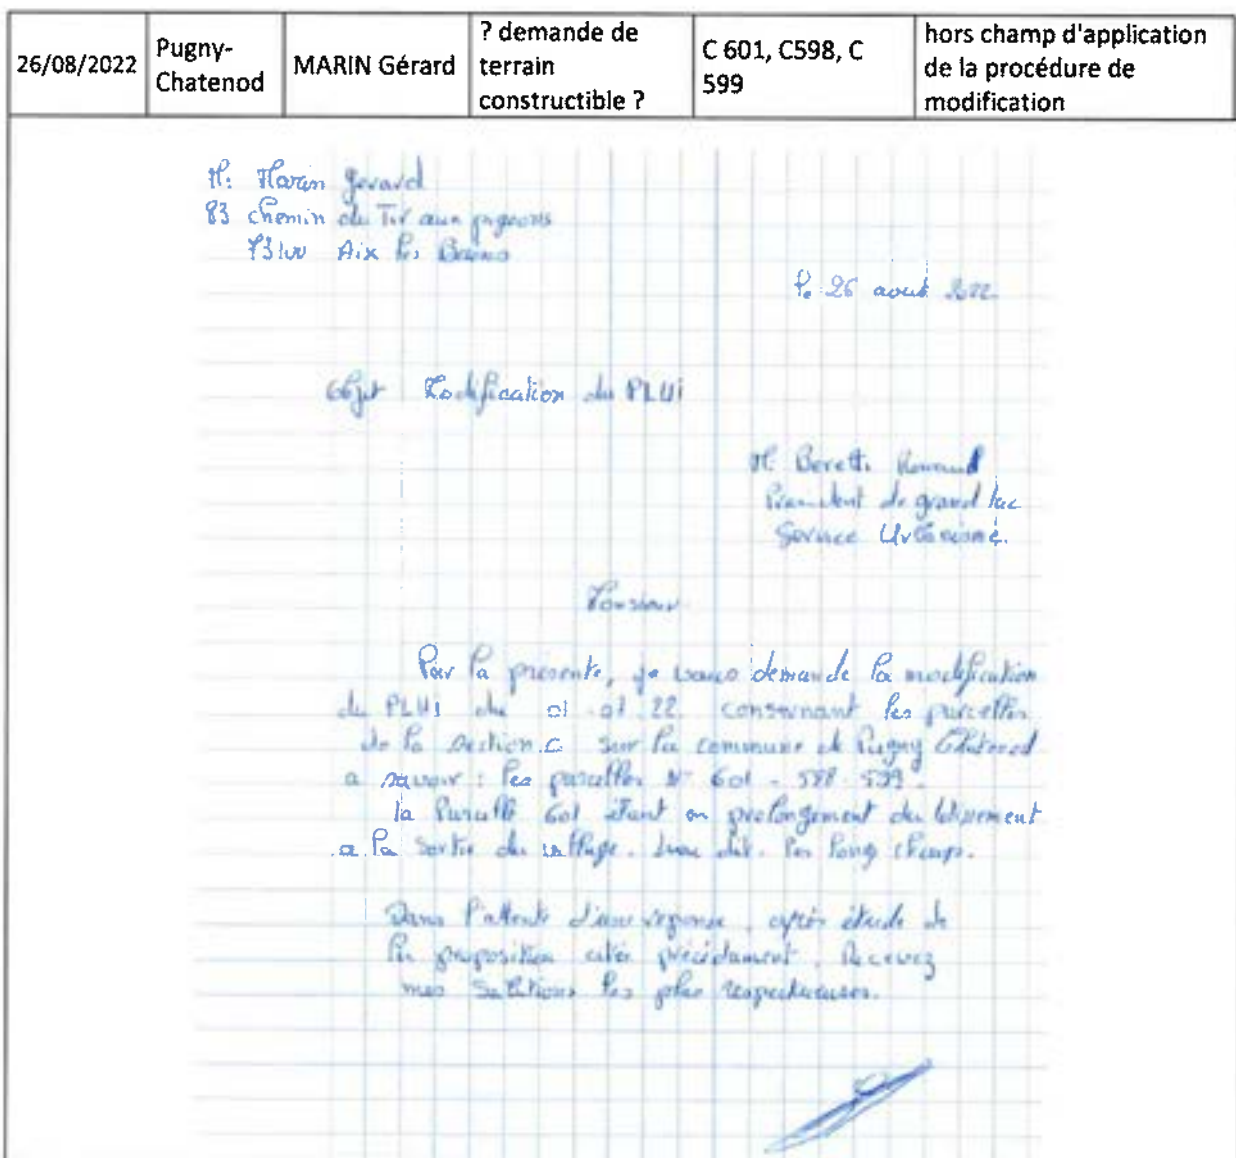 26/08/2022 Pugny-Chatenod MARIN Gérard ? demande de terrain constructible ? C 601, C598, C 599 hors champ d'application de la procédure de modification
M. Marin Gerard
83 chemin du Tir aux pigeons
73100 Aix les Bains
le 26 aout 2022
Objet Modification du PLUi
M. Beretti Renaud
President de grand lac
Service Urbanisme.
Monsieur
Par la presente, je vous demande la modification
du PLUi du 01.07.22 consernant les parcelles
de la section C sur la commune de Pugny Chatenod
a savoir : les parcelles N° 601 - 598 - 599.
la Parcelle 601 étant en prolongement du
a la sortie du village. lieu dit. les long champ.
Dans l'attente d'une réponse, après étude de
la proposition citée précédament. Recevez
mes salutions les plus respectueuses.